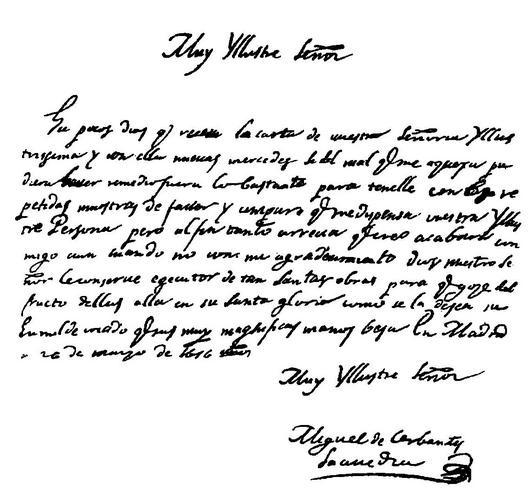 Muy Yllustre Señor
Ha pocos dias q̃ receui la carta de vuestra Señoria Yllus
trissima y con ella nuevas mercedes si del mal q̃ me aquexa pu
diera haver remedio fuera lo bastante para tenelle con las re
petidas muestras de favor y amparo q̃ me dispensa vuestra Yllus
tre Persona pero al fin tanto arrecia q̃ creo acabará con
migo aun cuando no con mi agradecimiento Dios nuestro Se
ñor le conserve egecutor de tan Santas obras para q̃ goze del
fructo dellas alla en su Santa gloria como se la desea su
humilde criado q̃ sus muy magnificas manos besa En Madrid
a 26 de março de 1616 años
Muy Yllustre Señor
Miguel de Cerbantes
Saauedra